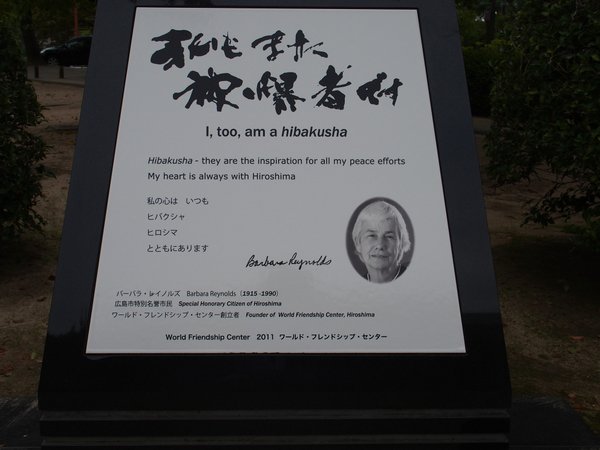 私もまた
被爆者です
I, too, am a hibakusha
Hibakusha - they are the inspiration for all my peace efforts
My heart is always with Hiroshima
私の心は いつも
ヒバクシャ
ヒロシマ
とともにあります
Barbara Reynolds
バーバラ・レイノルズ Barbara Reynolds (1915-1990)
広島市特別名誉市民 Special Honorary Citizen of Hiroshima
ワールド・フレンドシップ・センター創立者 Founder of World Friendship Center, Hiroshima
World Friendship Center 2011 ワールド・フレンドシップ・センター